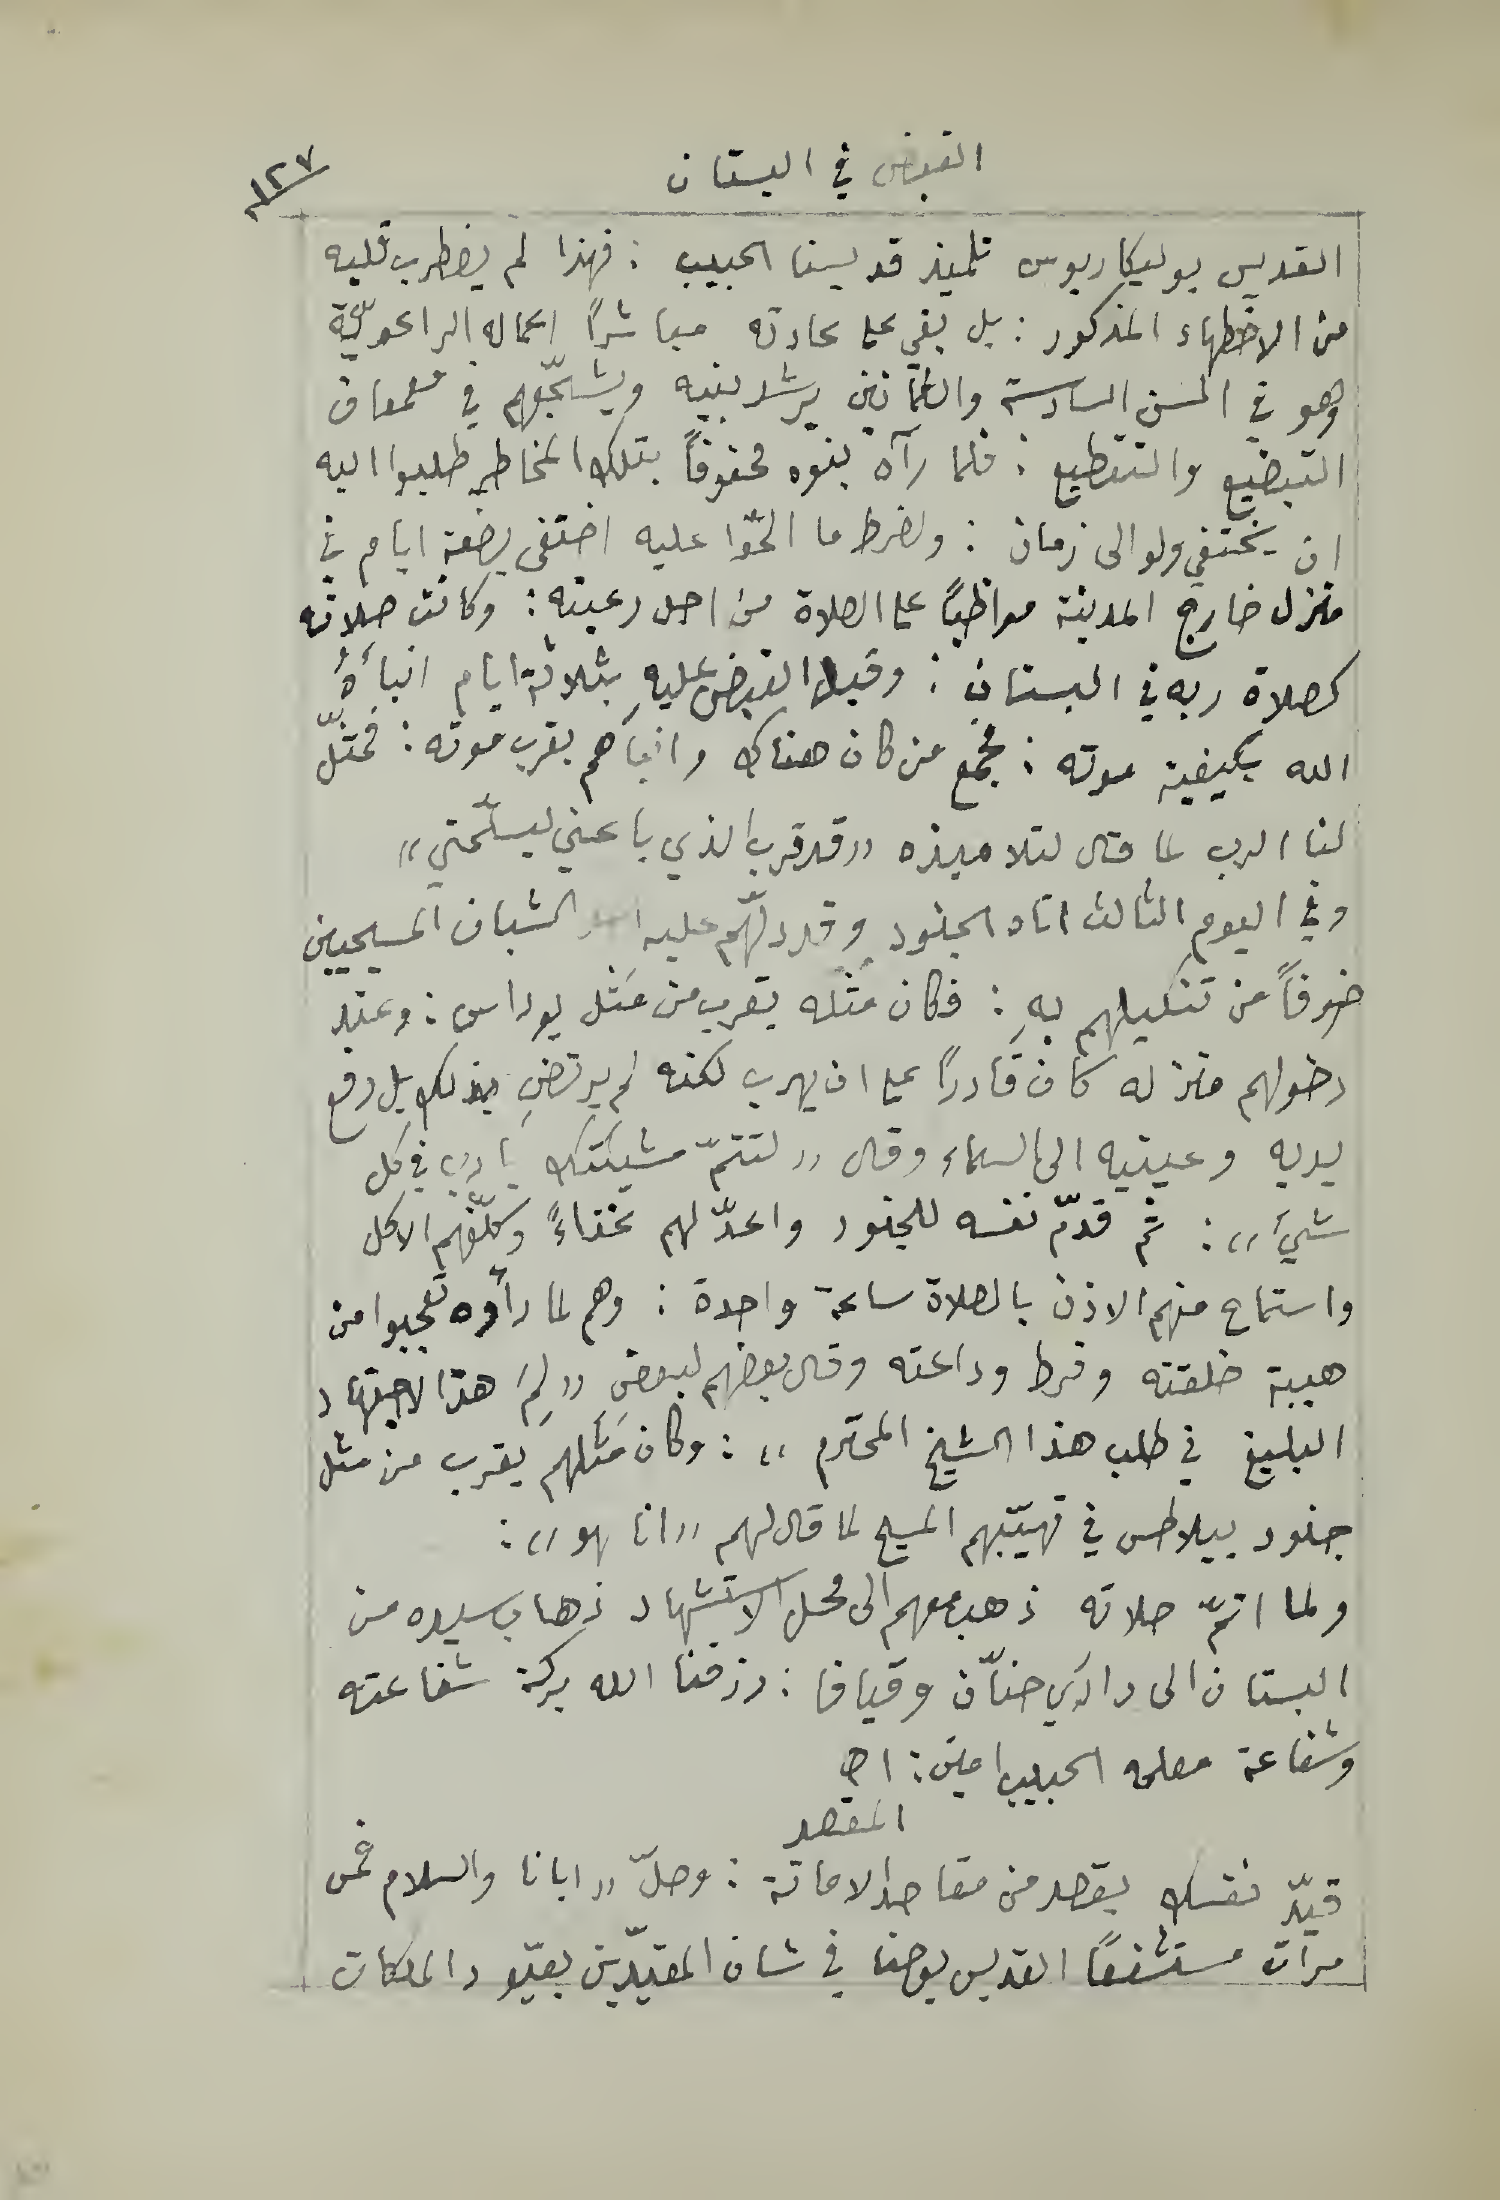 القبض في البستان
١٢٧
القديس بوليكاربوس تلميذ قديسنا الحبيب : فهذا لم يضطرب قلبه
من الاضطهاد المذكور : بل بقي على عادته مباشرًا اعماله الراعويّة
وهو في السن السادسة والثمانين يرشد بنيه ويشجّعهم في معمعان
التبضيع والتقطيع : فلما رآه بنوه محفوفاً بتلك المخاطر طلبوا اليه
ان يختفي ولو الى زمان : ولفرط ما الحّوا عليه اختفى بضعة ايام في
منزل خارج المدينة مواظباً على الصلاة من اجل رعيته : وكانت صلاته
كصلاة ربه في البستان : وقبل القبض عليهِ بثلاثة ايام انبأَهُ
الله بكيفية موته : فجمع من كان هناك وانبأهم بقرب موته : فمثّل
لنا الرب لما قال لتلاميذه „ قد قرب الذي باعني ليسلّمني „
وفي اليوم الثالث اتاه الجنود وقد دلّهم عليه احد الشبان المسيحيين
خوفاً من تنكيلهم بهِ : فكان مَثَله يقرب من مَثَل يوداس : وعند
دخولهم منزله كان قادرًا على ان يهرب لكنه لم يرتضِ بذلك بل رفع
يديه وعينيه الى السماء وقال „ لتتمّ مشيئتك يا ربي في كل
شيء „ : ثم قدّم نفسه للجنود واعدّ لهم غذاءً وكلّفهم الاكل
واستماح منهم الاذن بالصلاة ساعة واحدة : وهم لما رأوه تعجبوا من
هيبة خلقته وفرط وداعته وقال بعضهم لبعض „ لِمَ هذا الاجتهاد
البليغ في طلب هذا الشيخ المحترم „ : وكان مَثَلهم يقرب من مثل
جنود بيلاطس في تهيّبهم المسيح لما قال لهم „ انا هو „ :
ولما اتمّ صلاته ذهب معهم الى محل الاستشهاد ذهاب سيده من
البستان الى دارَي حنّان وقيافا : رزقنا الله بركة شفاعته
وشفاعة معلمه الحبيب امين : اه
المقصد
قيّد نفسك بقصد من مقاصد الاماتة : وصلّ „ ابانا والسلام خمس
مرات مستشفعًا القديس يوحنا في شان المقيّدين بقيود الملكات